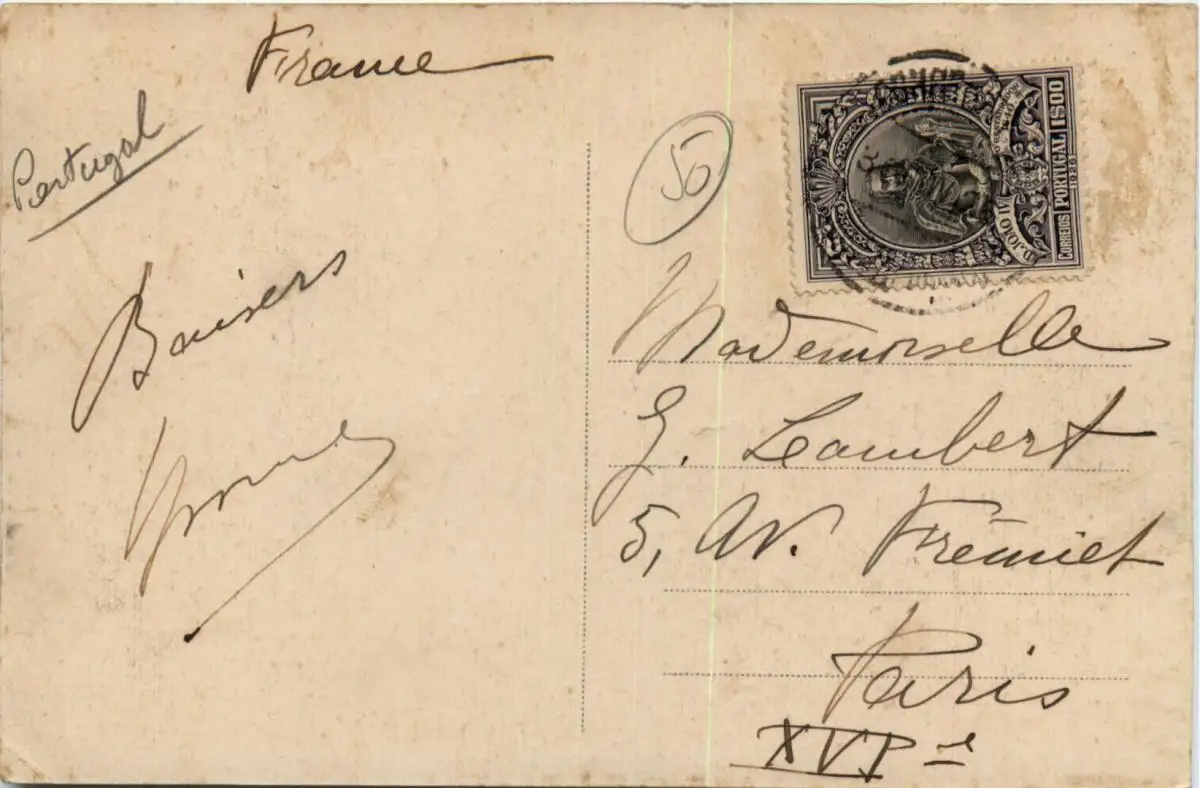 France
Portugal
50
Baisers
Yvonne
Mademoiselle
G. Lambert
5, Av. Frémiet
Paris
XVIe
D. JOÃO IV
CORREIOS PORTUGAL 1$00
1926